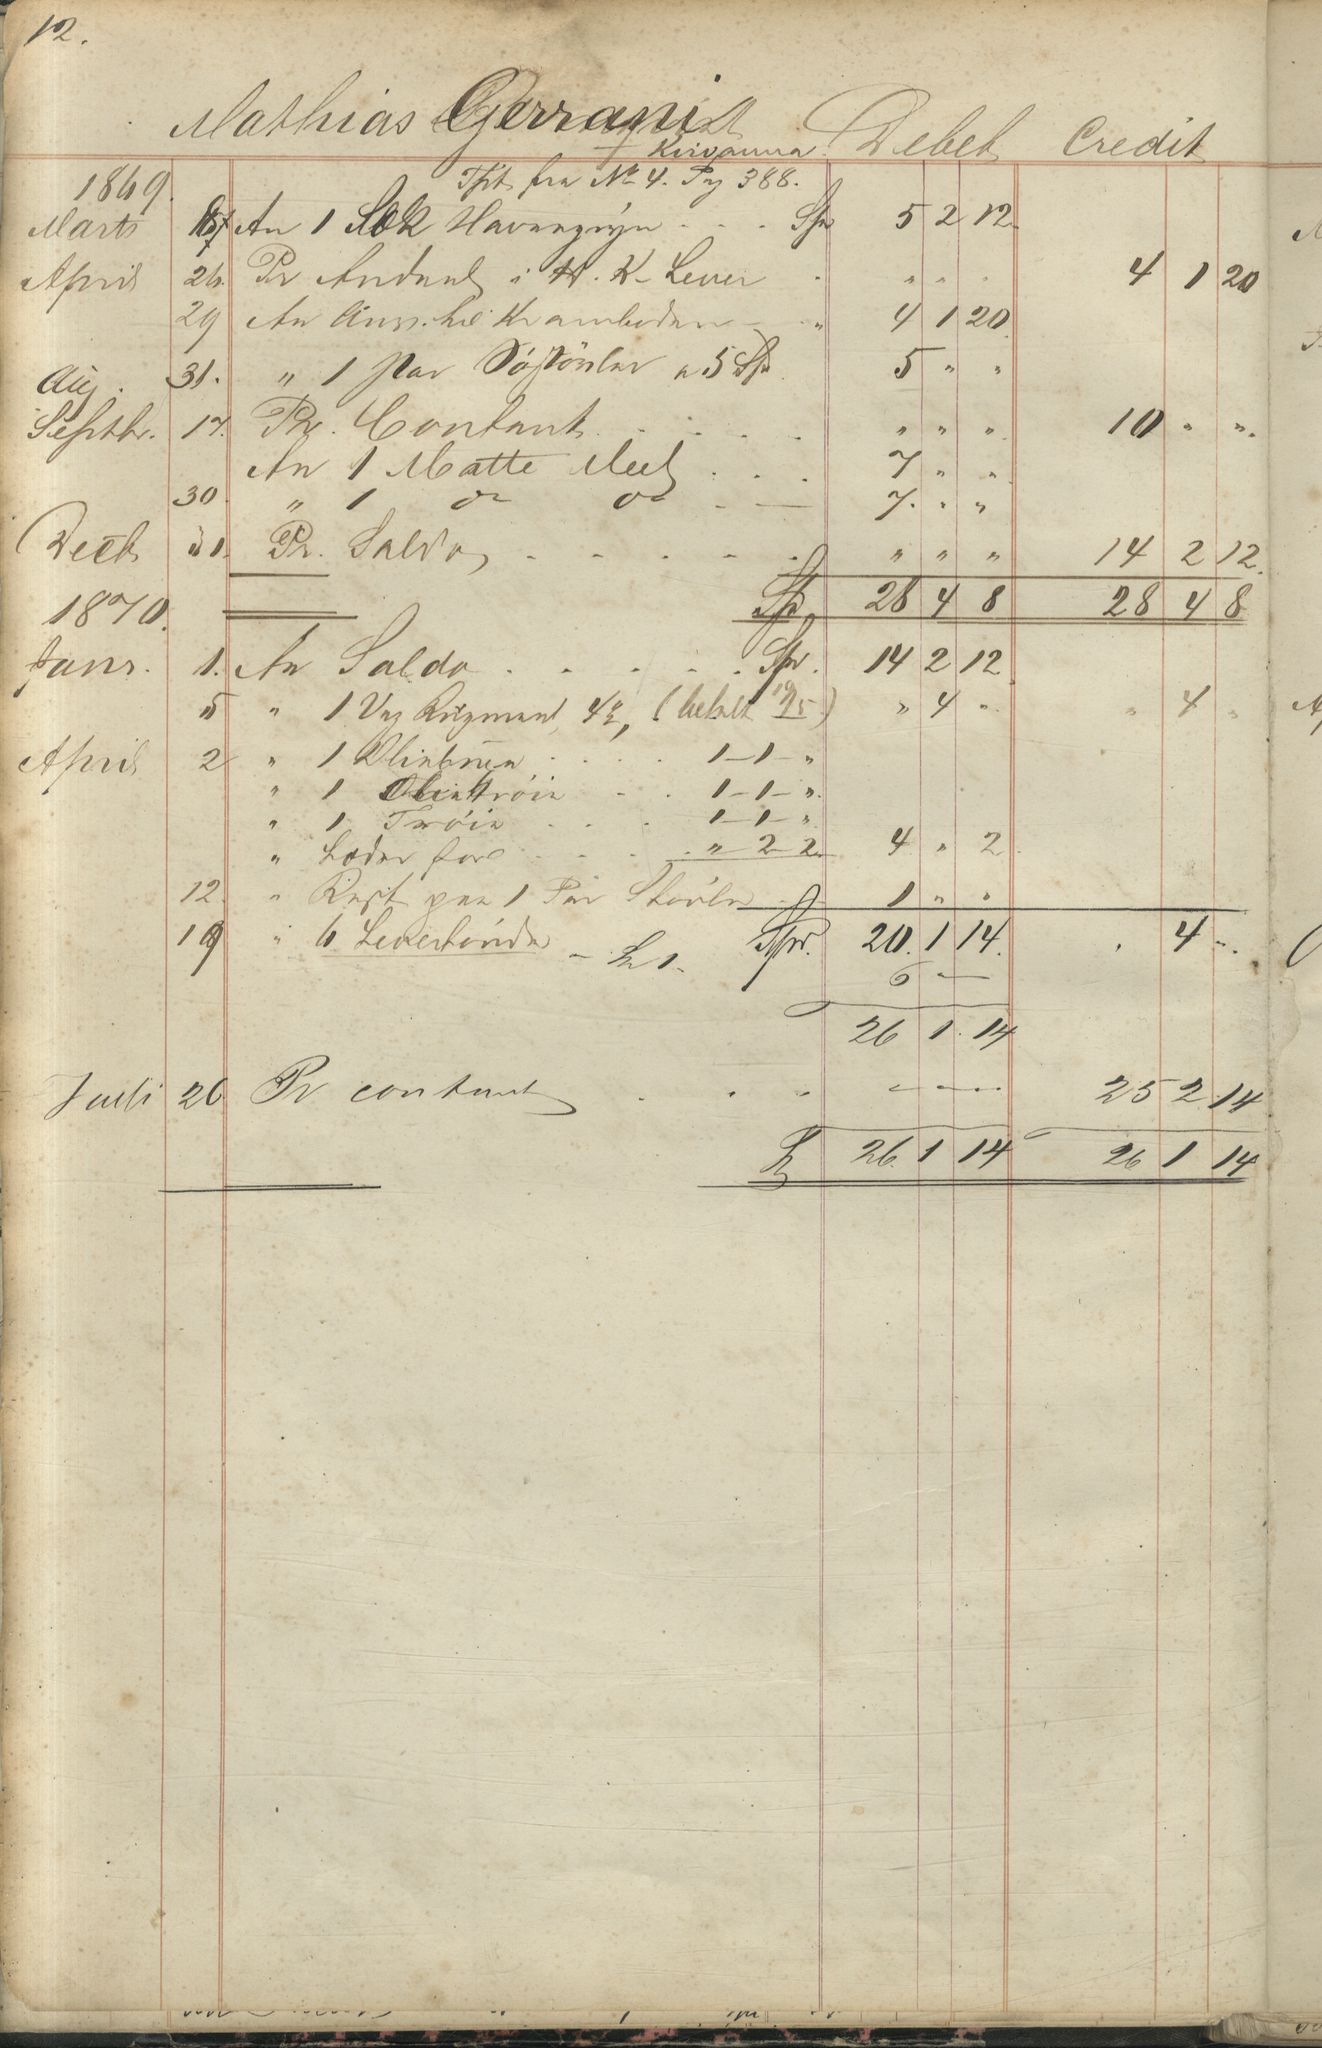 12.
Mathias Gerranid Debet Credit
Kirvanna
1869. Tpt fra No 4. Pag 388.
Marts 17 An 1 Sæk Havregryn . . . Spr 5 2 12
April 26. Pr Andeel i H. K. Lever . " " . 4 1 20
29 An Anv. til Kramboden — " 4 1 20
Aug. 31. " 1 Par Søstövler a 5 Sp 5 " "
Septbr. 17. Pr. Contant . . . . . " " " 10 " "
An 1 Matte Meel . . . 7 " "
30. " 1 do do . — 7 " "
Decb 31. Pr. Saldo . . . . . " " " 14 2 12.
Sp 28 4 8 28 4 8
1870.
Janr. 1. An Saldo . . . . . Spr. 14 2 12
5 " 1 Vog Rugmeel 4 (betalt 19/5) " 4 " " 4 "
April 2 " 1 Oliebuxe . . . . 1–1–"
" 1 Olietrøie . . . 1–1–"
" 1 Trøie . . . . 1–1–"
" Læder for . . . . " 2 2 4 " 2
12. " Rest paa 1 Par Støvler 1 " "
19 " 6 Levertønder – 1. Spr. 20. 1 14. . 4 ".
6 —
26 1 14
Juli 26 Pr contant . . . — — 25 2 14
26 1 14 26 1 14